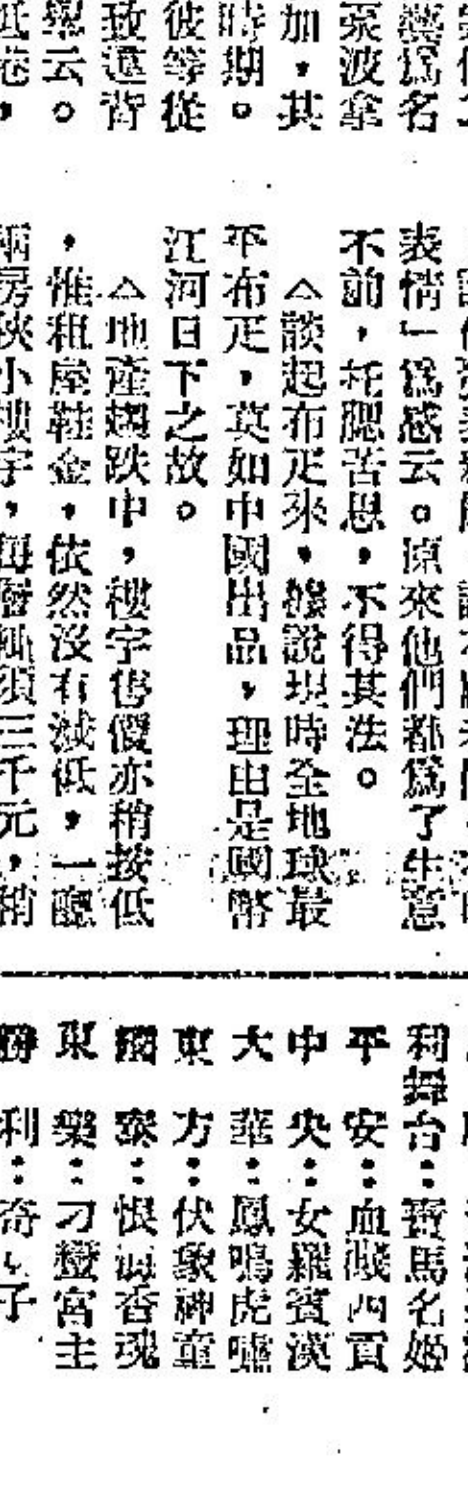 藝爲名
泵波拿
加，其
時期。
彼等從
致違背
舉云。
表情」爲感云。原來他們都爲了生意
不前，托腮苦思，不得其法。
△談起布疋來，據說現時全地球最
平布疋，莫如中國出品，理由是國幣
江河日下之故。
△地產趨跌中，樓宇售價亦稍按低
，惟租屋鞋金，依然沒有減低，一廳
兩房狹小樓宇，每層動須三千元，稍
利舞台：寶馬名姬
平安：血濺四貢
中央：女羅賓漢
大華：鳳鳴虎嘯
東方：伏象神童
國泰：恨海香魂
東樂：刁蠻宮主
勝利：奇 子